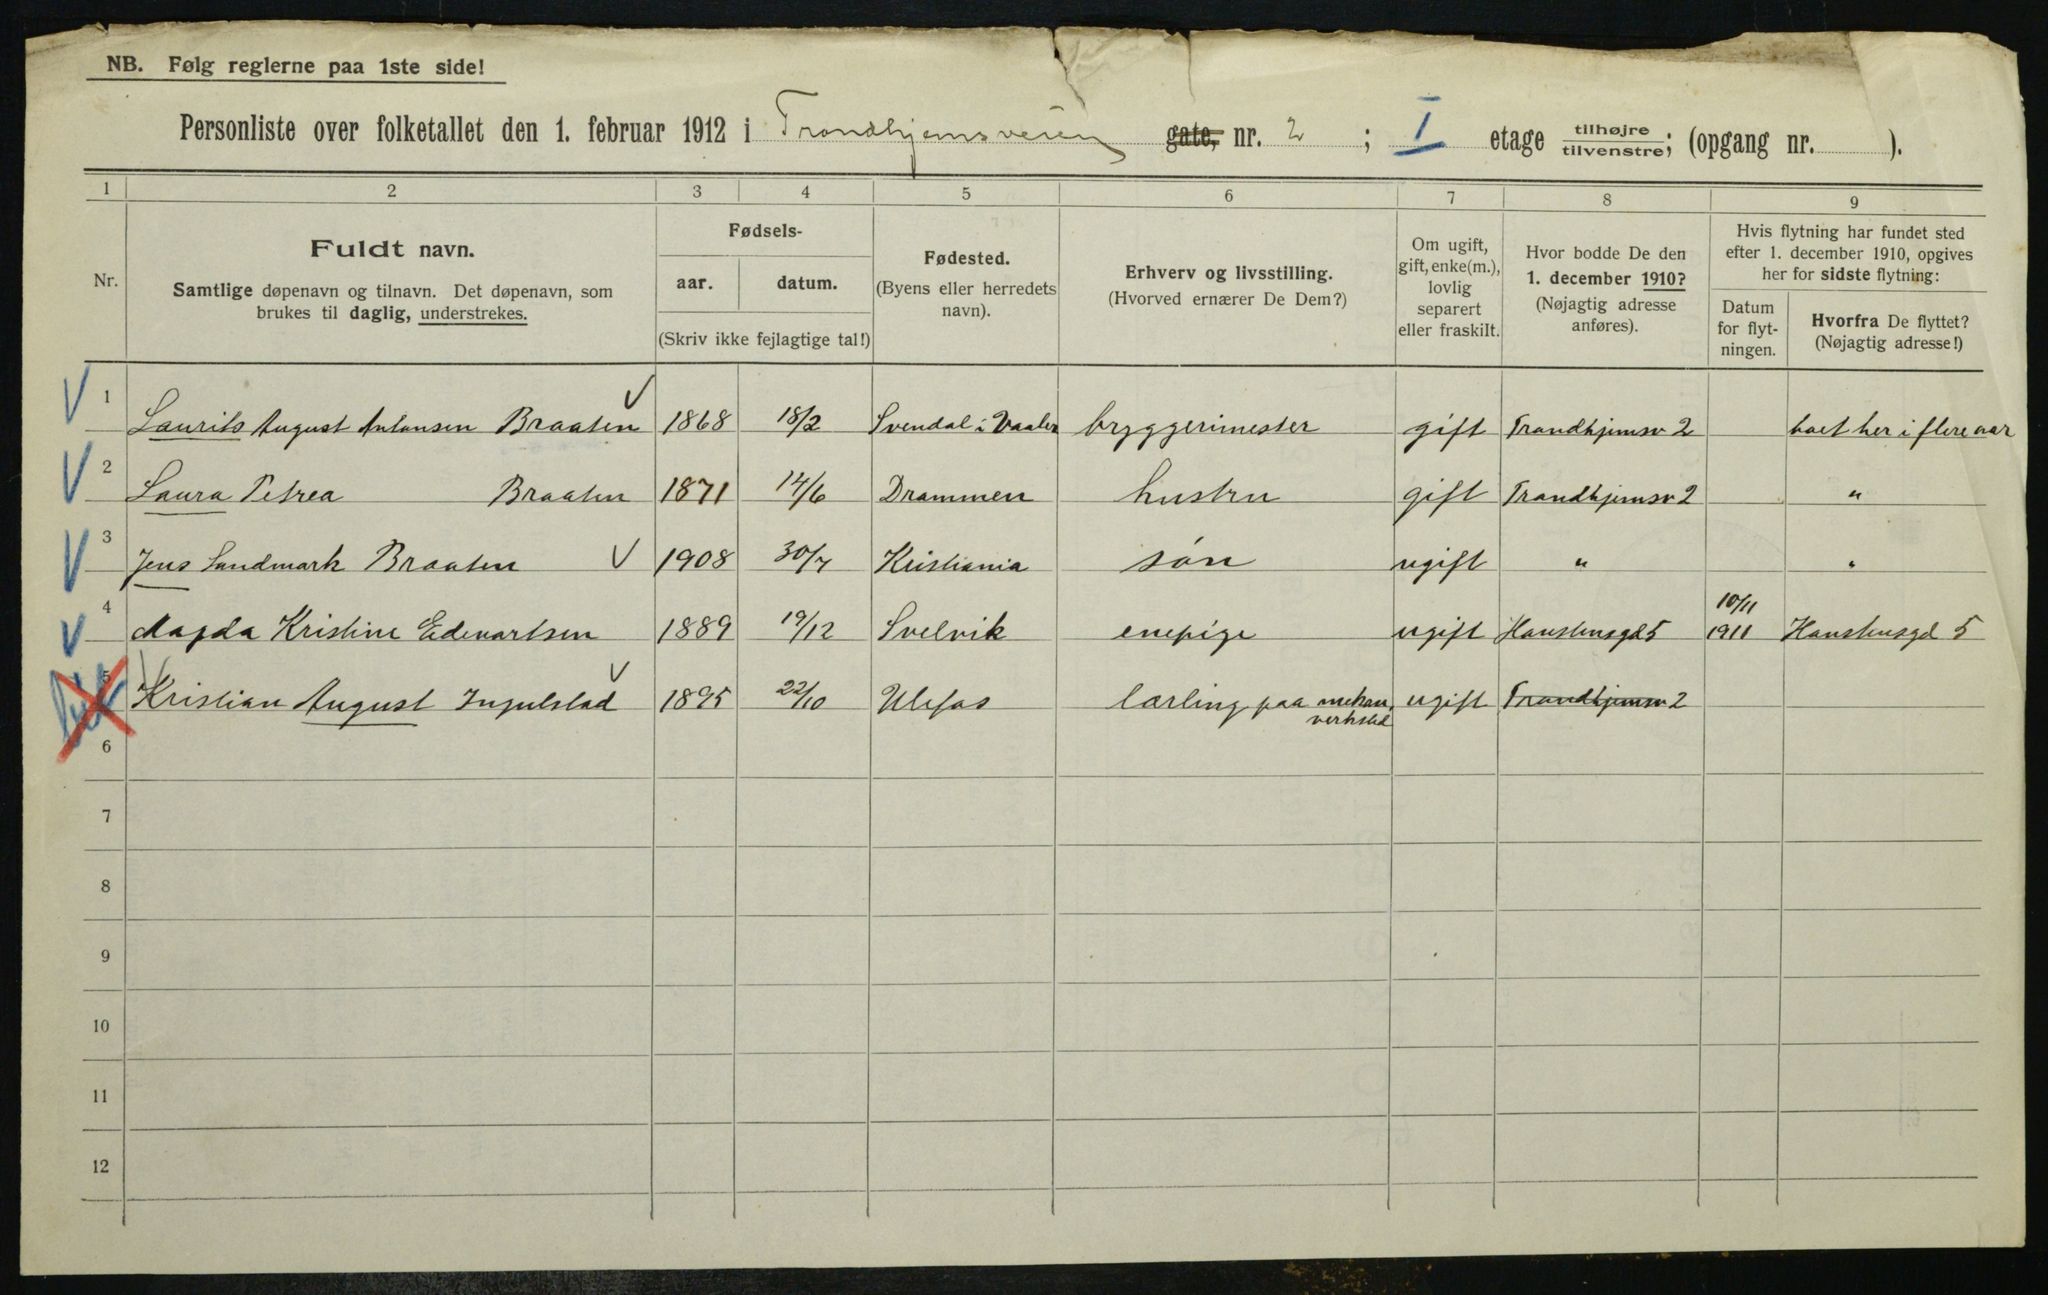 NB. Følg reglerne paa 1ste side!
Personliste over folketallet den 1. februar 1912 i Trondhjemsveien gate, nr. 2 ; I etage tilhøjre tilvenstre; (opgang nr. ).
1 2 3 4 5 6 7 8 9
Nr.
Fuldt navn.
Samtlige døpenavn og tilnavn. Det døpenavn, som
brukes til daglig, understrekes.
Fødsels-
aar. datum.
(Skriv ikke fejlagtige tal!)
Fødested.
(Byens eller herredets
navn).
Erhverv og livsstilling.
(Hvorved ernærer De Dem?)
Om ugift,
gift, enke(m.),
lovlig
separert
eller fraskilt.
Hvor bodde De den
1. december 1910?
(Nøjagtig adresse
anføres).
Hvis flytning har fundet sted
efter 1. december 1910, opgives
her for sidste flytning:
Datum
for flyt-
ningen.
Hvorfra De flyttet?
(Nøjagtig adresse!)
1 Laurits August Antonsen Braaten 1868 18/2 Svendal i Vaaler bryggerimester gift Trondhjemsv 2 boet her i flere aar
2 Laura Petrea Braaten 1871 14/6 Drammen hustru gift Trondhjemsv 2 "
3 Jens Landmark Braaten 1908 30/7 Kristiania søn ugift " "
4 Magda Kristine Edevartsen 1889 19/12 Svelvik enepige ugift Hanstensgd 5 10/11 1911 Hanstensgd 5
5 Kristian August Ingulstad 1895 22/10 Ulefos lærling paa mekan. verksted ugift Trondhjemsv 2
6
7
8
9
10
11
12